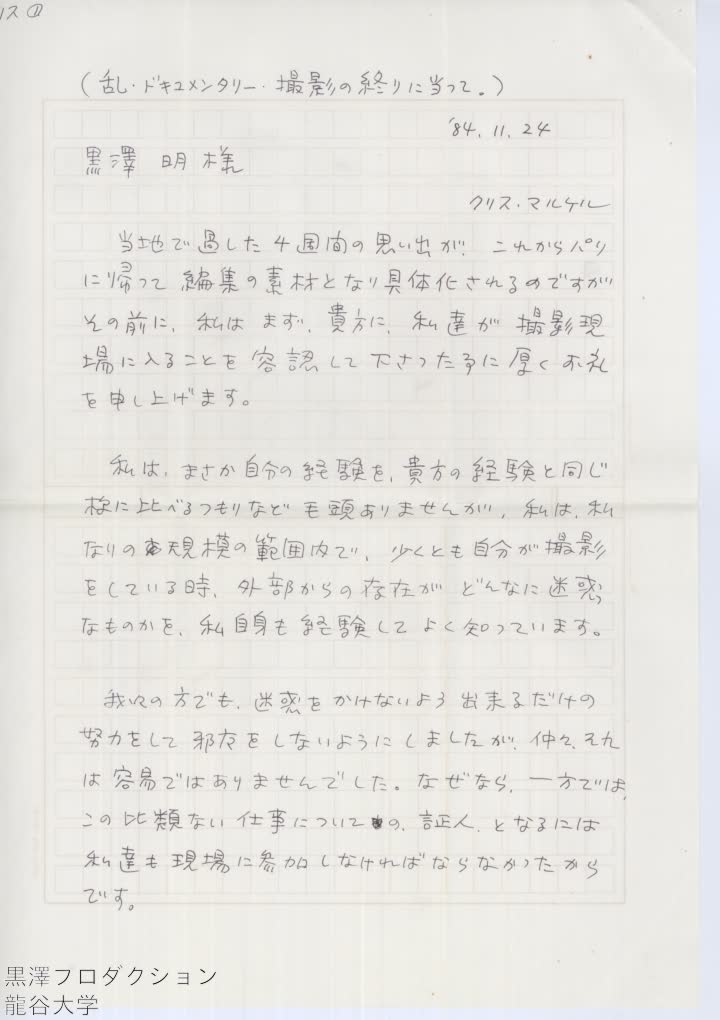 リス①
(乱・ドキュメンタリー・撮影の終りに当って。)
'84.11.24
黒澤 明 様
クリス・マルケル
当地で過した4週間の思い出が、これからパリ
に帰って編集の素材となり具体化されるのですが
その前に、私はまず、貴方に、私達が撮影現
場に入ることを容認して下さった事に厚くお礼
を申し上げます。
私は、まさか自分の経験を、貴方の経験と同じ
様に比べるつもりなど毛頭ありませんが、私は、私
なりの規模の範囲内で、少くとも自分が撮影
をしている時、外部からの存在がどんなに迷惑
なものかを、私自身も経験してよく知っています。
我々の方でも、迷惑をかけないよう出来るだけの
努力をして邪魔をしないようにしましたが、仲々、それ
は容易ではありませんでした。なぜなら、一方では、
この比類ない仕事についての、証人、となるには
私達も現場に参加しなければならなかったから
です。
黒澤プロダクション
龍谷大学